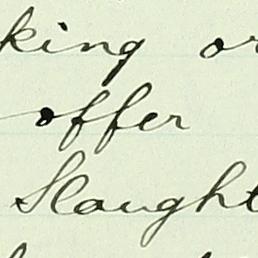 king or
offer
Slaught